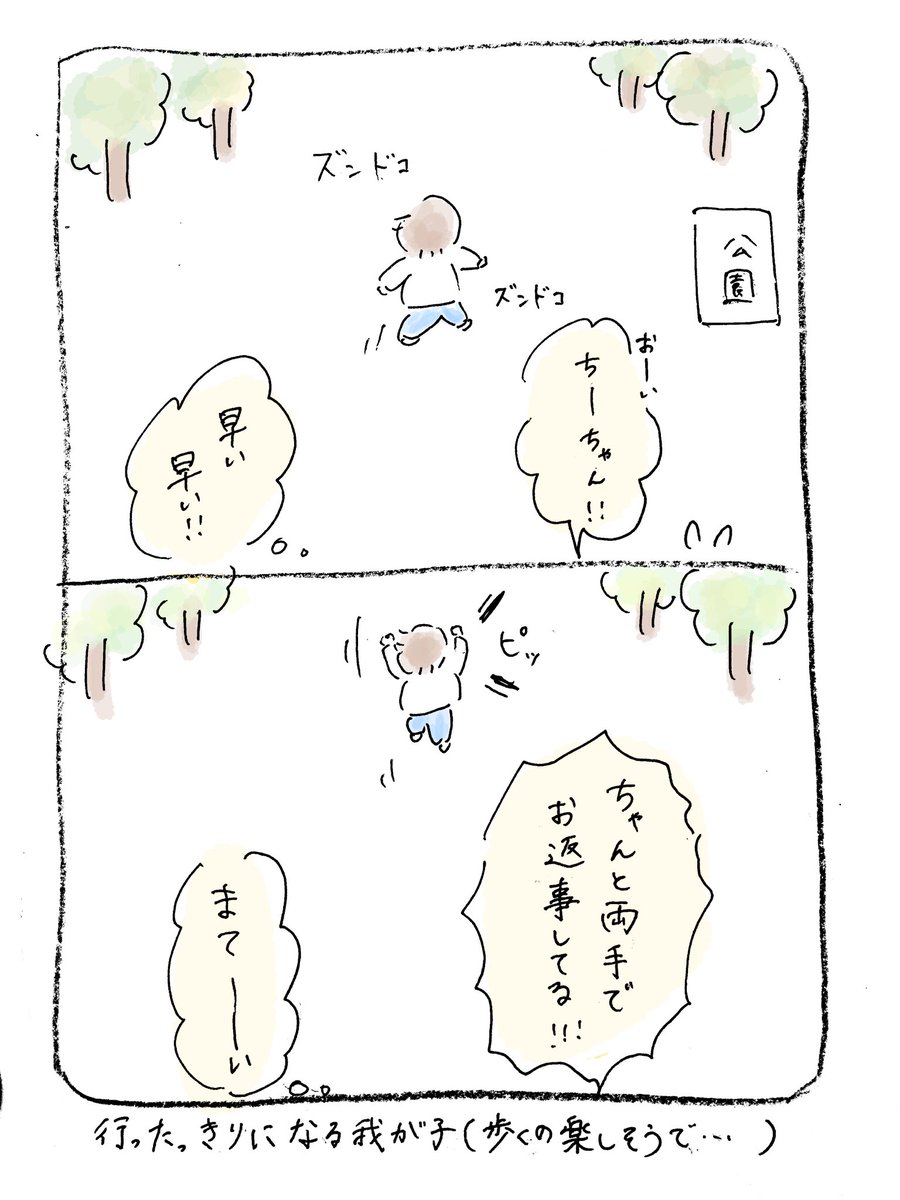 ズンドコ
公園
ズンドコ
おーい
ちーちゃん!!
早い
早い!!
ピッ
ちゃんと両手で
お返事してる!!!
まてーーい
行ったっきりになる我が子(歩くの楽しそうで…)